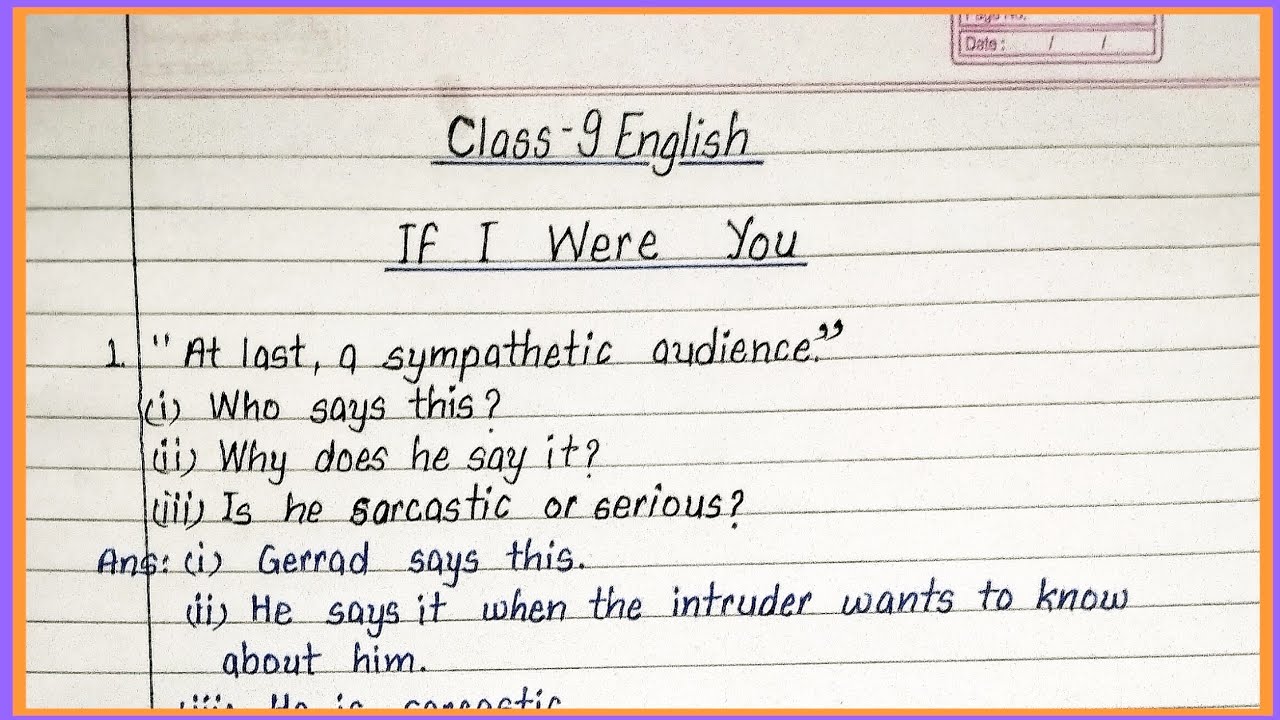 Page No.
Date: / /
Class-9 English
If I Were You
1. "At last, a sympathetic audience."
(i) Who says this?
(ii) Why does he say it?
(iii) Is he sarcastic or serious?
Ans: (i) Gerrad says this.
(ii) He says it when the intruder wants to know
about him.
(iii) He is sarcastic